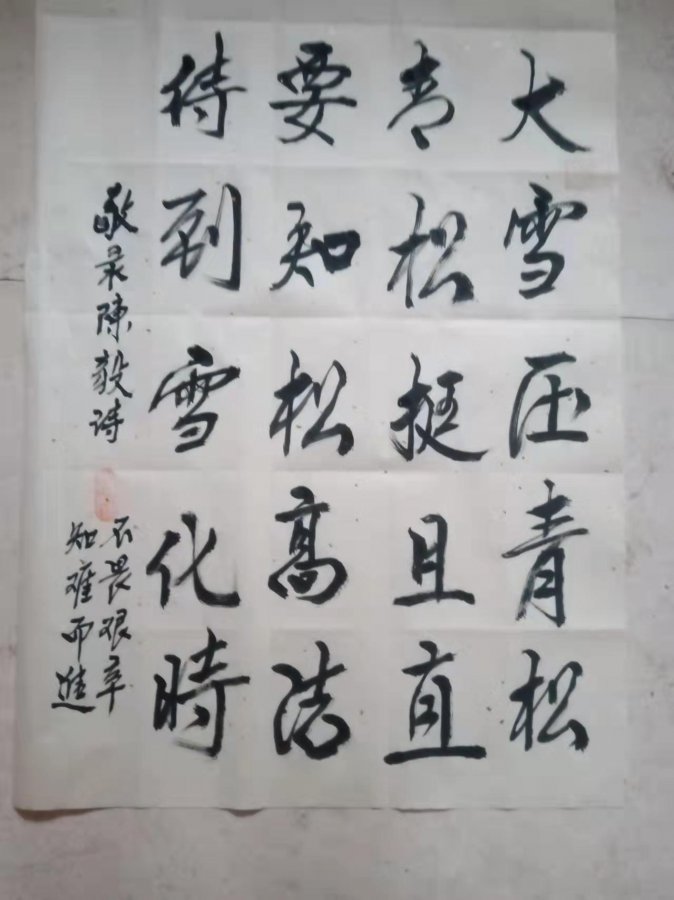 大雪压青松
青松挺且直
要知松高洁
待到雪化時
敬录陳毅诗
不畏艰辛
知难而進